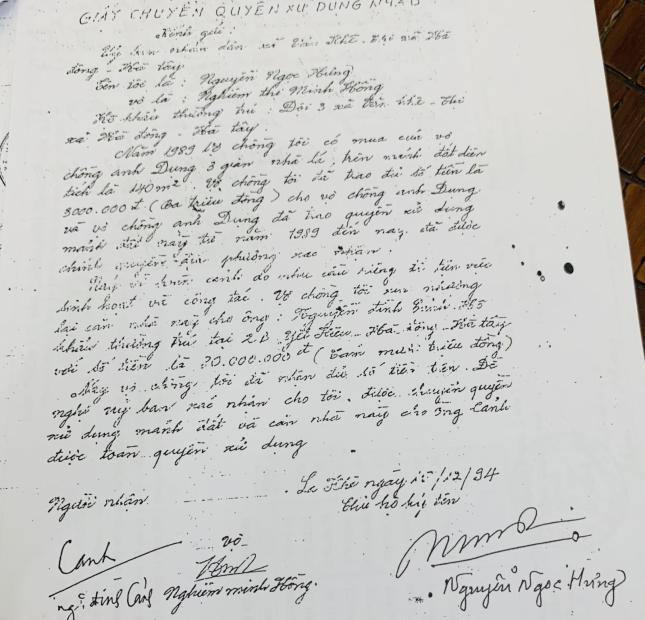 GIẤY CHUYỂN QUYỀN XỬ DỤNG NHÀ Ở
Kính gửi:
Uỷ ban nhân dân xã Văn Khê. Thị xã Hà
đông - Hà tây
Tên tôi là: Nguyễn Ngọc Hưng
vợ là: Nghiêm thị Minh Hồng
Hộ khẩu thường trú: Đội 3 xã Văn Khê - Thị
xã Hà đông - Hà tây.
Năm 1989 Vợ chồng tôi có mua của vợ
chồng anh Dung 3 gian nhà lá, trên mảnh đất diện
tích là 140m². Vợ chồng tôi đã trao đủ số tiền là
3000.000đ (Ba triệu đồng) cho vợ chồng anh Dung
và vợ chồng anh Dung đã trao quyền xử dụng
mảnh đất này từ năm 1989 đến nay, đã được
chính quyền địa phương xác nhận.
Nay vì hoàn cảnh do nhu cầu riêng để tiện việc
sinh hoạt và công tác. Vợ chồng tôi xin nhường
lại căn nhà này cho ông: Nguyễn đình Cảnh. Hộ
khẩu thường trú tại 2B Yết Kiêu - Hà đông - Hà tây
với số tiền là 80.000.000đ (Tám mươi triệu đồng)
Nay vợ chồng tôi đã nhận đủ số tiền trên. Đề
nghị uỷ ban xác nhận cho tôi, được chuyển quyền
xử dụng mảnh đất và căn nhà này cho ông Cảnh
được toàn quyền xử dụng
La Khê ngày 15/12/94
Người nhận
Chủ hộ ký tên
vợ
Canh
ng~ đình Cảnh
Nghiêm minh Hồng.
Nguyễn Ngọc Hưng